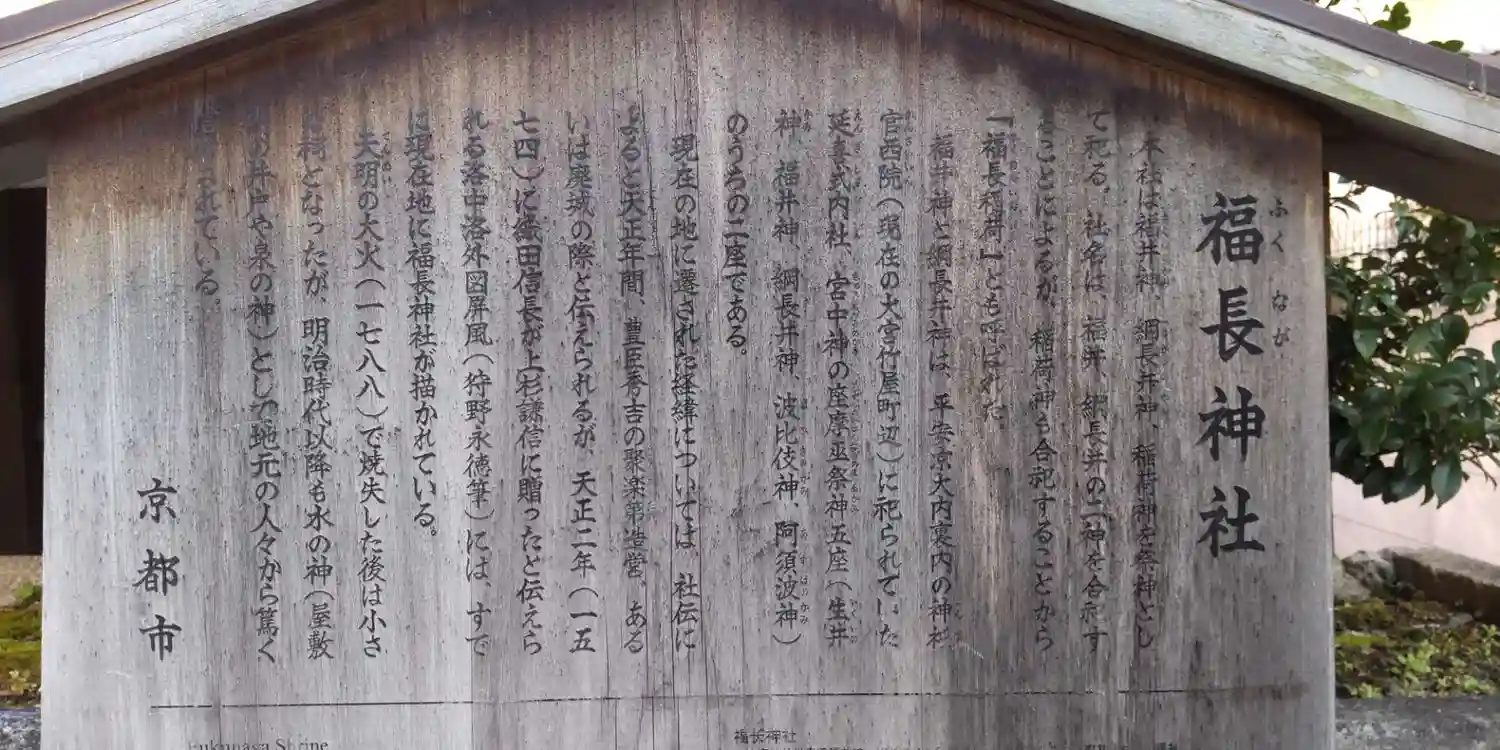 福長神社
ふくなが
本社は福井神、綱長井神、稲荷神を祭神とし
て祀る。社名は、福井、綱長井の二神を合祀す
ることによるが、稲荷神も合祀することから
「福長稲荷」とも呼ばれた。
福井神と綱長井神は、平安京大内裏内の神祇
官西院（現在の大宮竹屋町辺）に祀られていた
延喜式内社、宮中神の座摩巫祭神五座（生井
神、福井神、綱長井神、波比伎神、阿須波神）
のうちの二座である。
現在の地に遷された経緯については、社伝に
よると天正年間、豊臣秀吉の聚楽第造営、ある
いは廃城の際と伝えられるが、天正二年（一五
七四）に織田信長が上杉謙信に贈ったと伝えら
れる洛中洛外図屏風（狩野永徳筆）には、すで
に現在地に福長神社が描かれている。
天明の大火（一七八八）で焼失した後は小さ
な祠となったが、明治時代以降も水の神（屋敷
の井戸や泉の神）として地元の人々から篤く
れている。
京都市
Fukunaga Shrine
福长神社